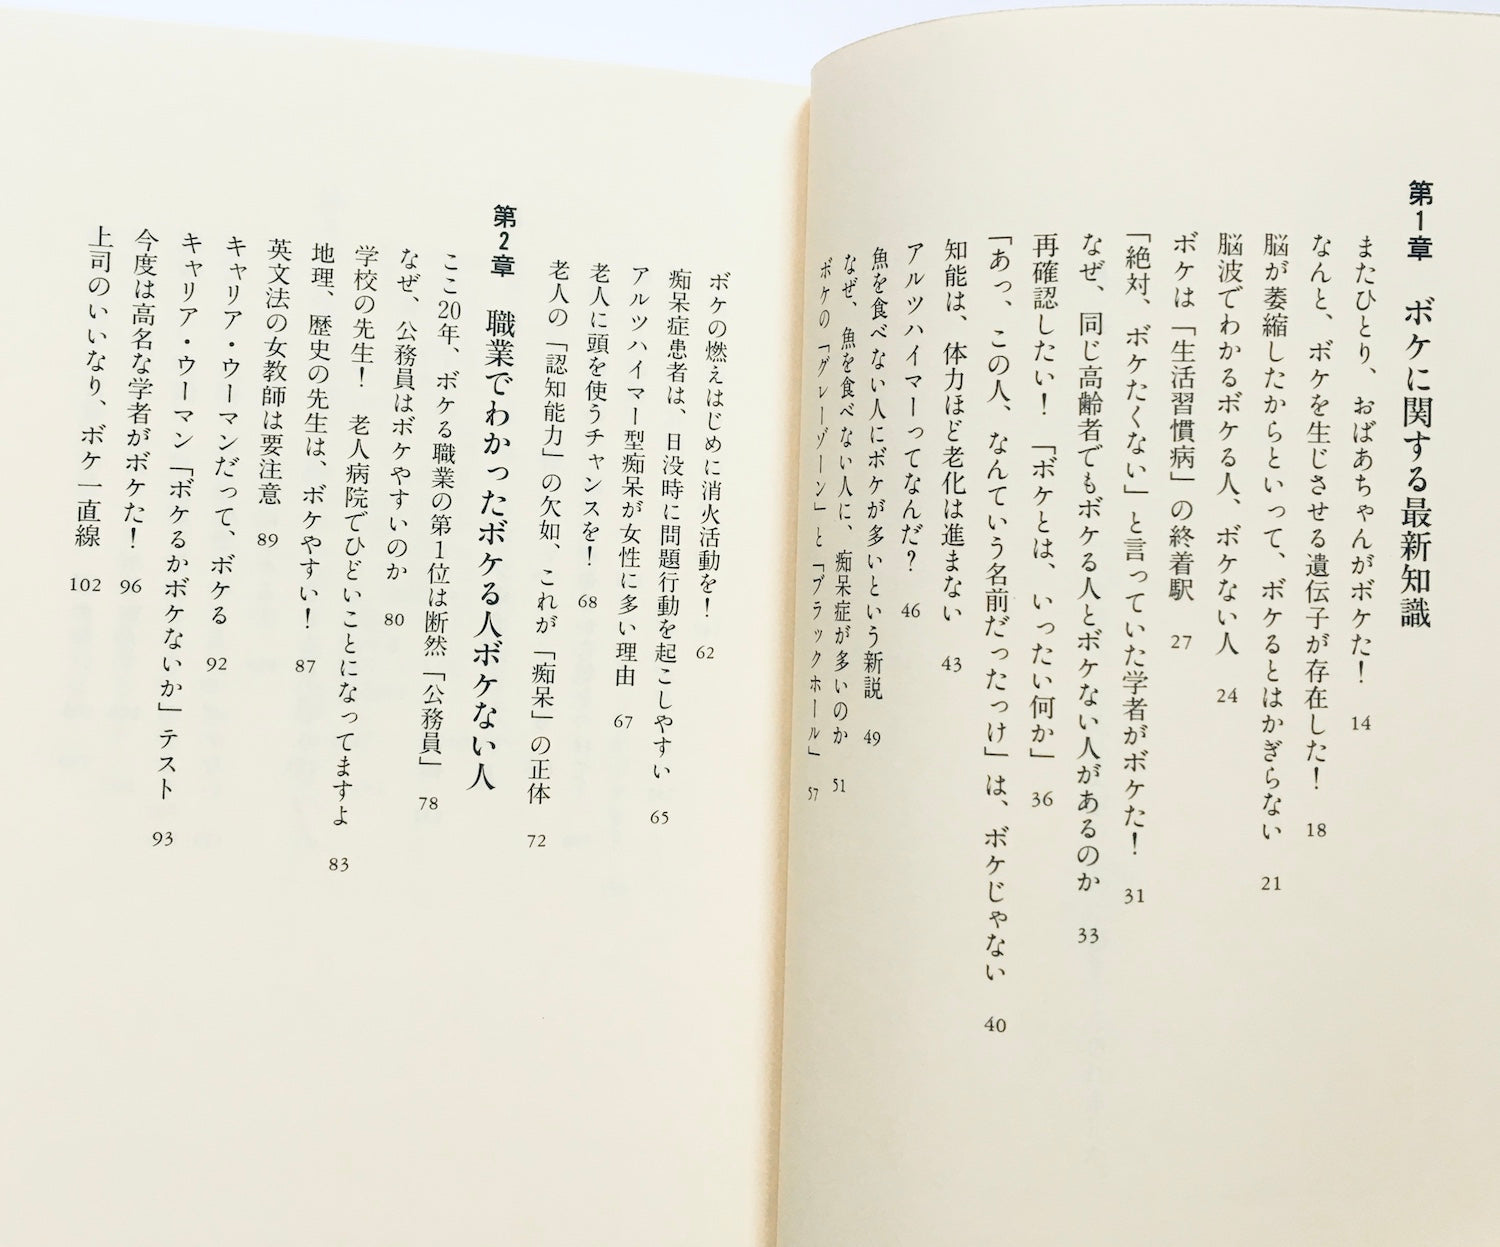 第1章 ボケに関する最新知識
またひとり、おばあちゃんがボケた! 14
なんと、ボケを生じさせる遺伝子が存在した! 18
脳が萎縮したからといって、ボケるとはかぎらない 21
脳波でわかるボケる人、ボケない人 24
ボケは「生活習慣病」の終着駅 27
「絶対、ボケたくない」と言っていた学者がボケた! 31
なぜ、同じ高齢者でもボケる人とボケない人があるのか 33
再確認したい! 「ボケとは、いったい何か」 36
「あっ、この人、なんていう名前だったっけ」は、ボケじゃない 40
知能は、体力ほど老化は進まない 43
アルツハイマーってなんだ? 46
魚を食べない人にボケが多いという新説 49
なぜ、魚を食べない人に、痴呆症が多いのか 51
ボケの「グレーゾーン」と「ブラックホール」 57
ボケの燃えはじめに消火活動を! 62
痴呆症患者は、日没時に問題行動を起こしやすい 65
アルツハイマー型痴呆が女性に多い理由 67
老人に頭を使うチャンスを! 68
老人の「認知能力」の欠如、これが「痴呆」の正体 72
第2章 職業でわかったボケる人ボケない人
ここ20年、ボケる職業の第1位は断然「公務員」 78
なぜ、公務員はボケやすいのか 80
学校の先生! 老人病院でひどいことになってますよ 83
地理、歴史の先生は、ボケやすい! 87
英文法の女教師は要注意 89
キャリア・ウーマンだって、ボケる 92
キャリア・ウーマン「ボケるかボケないか」テスト 93
今度は高名な学者がボケた! 96
上司のいいなり、ボケ一直線 102